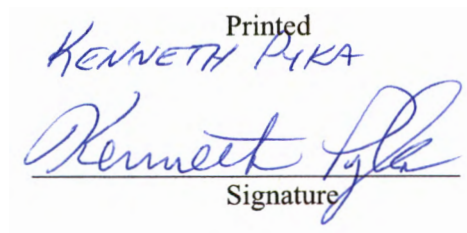 Printed
KENNETH PYKA
Kenneth Pyka
Signature